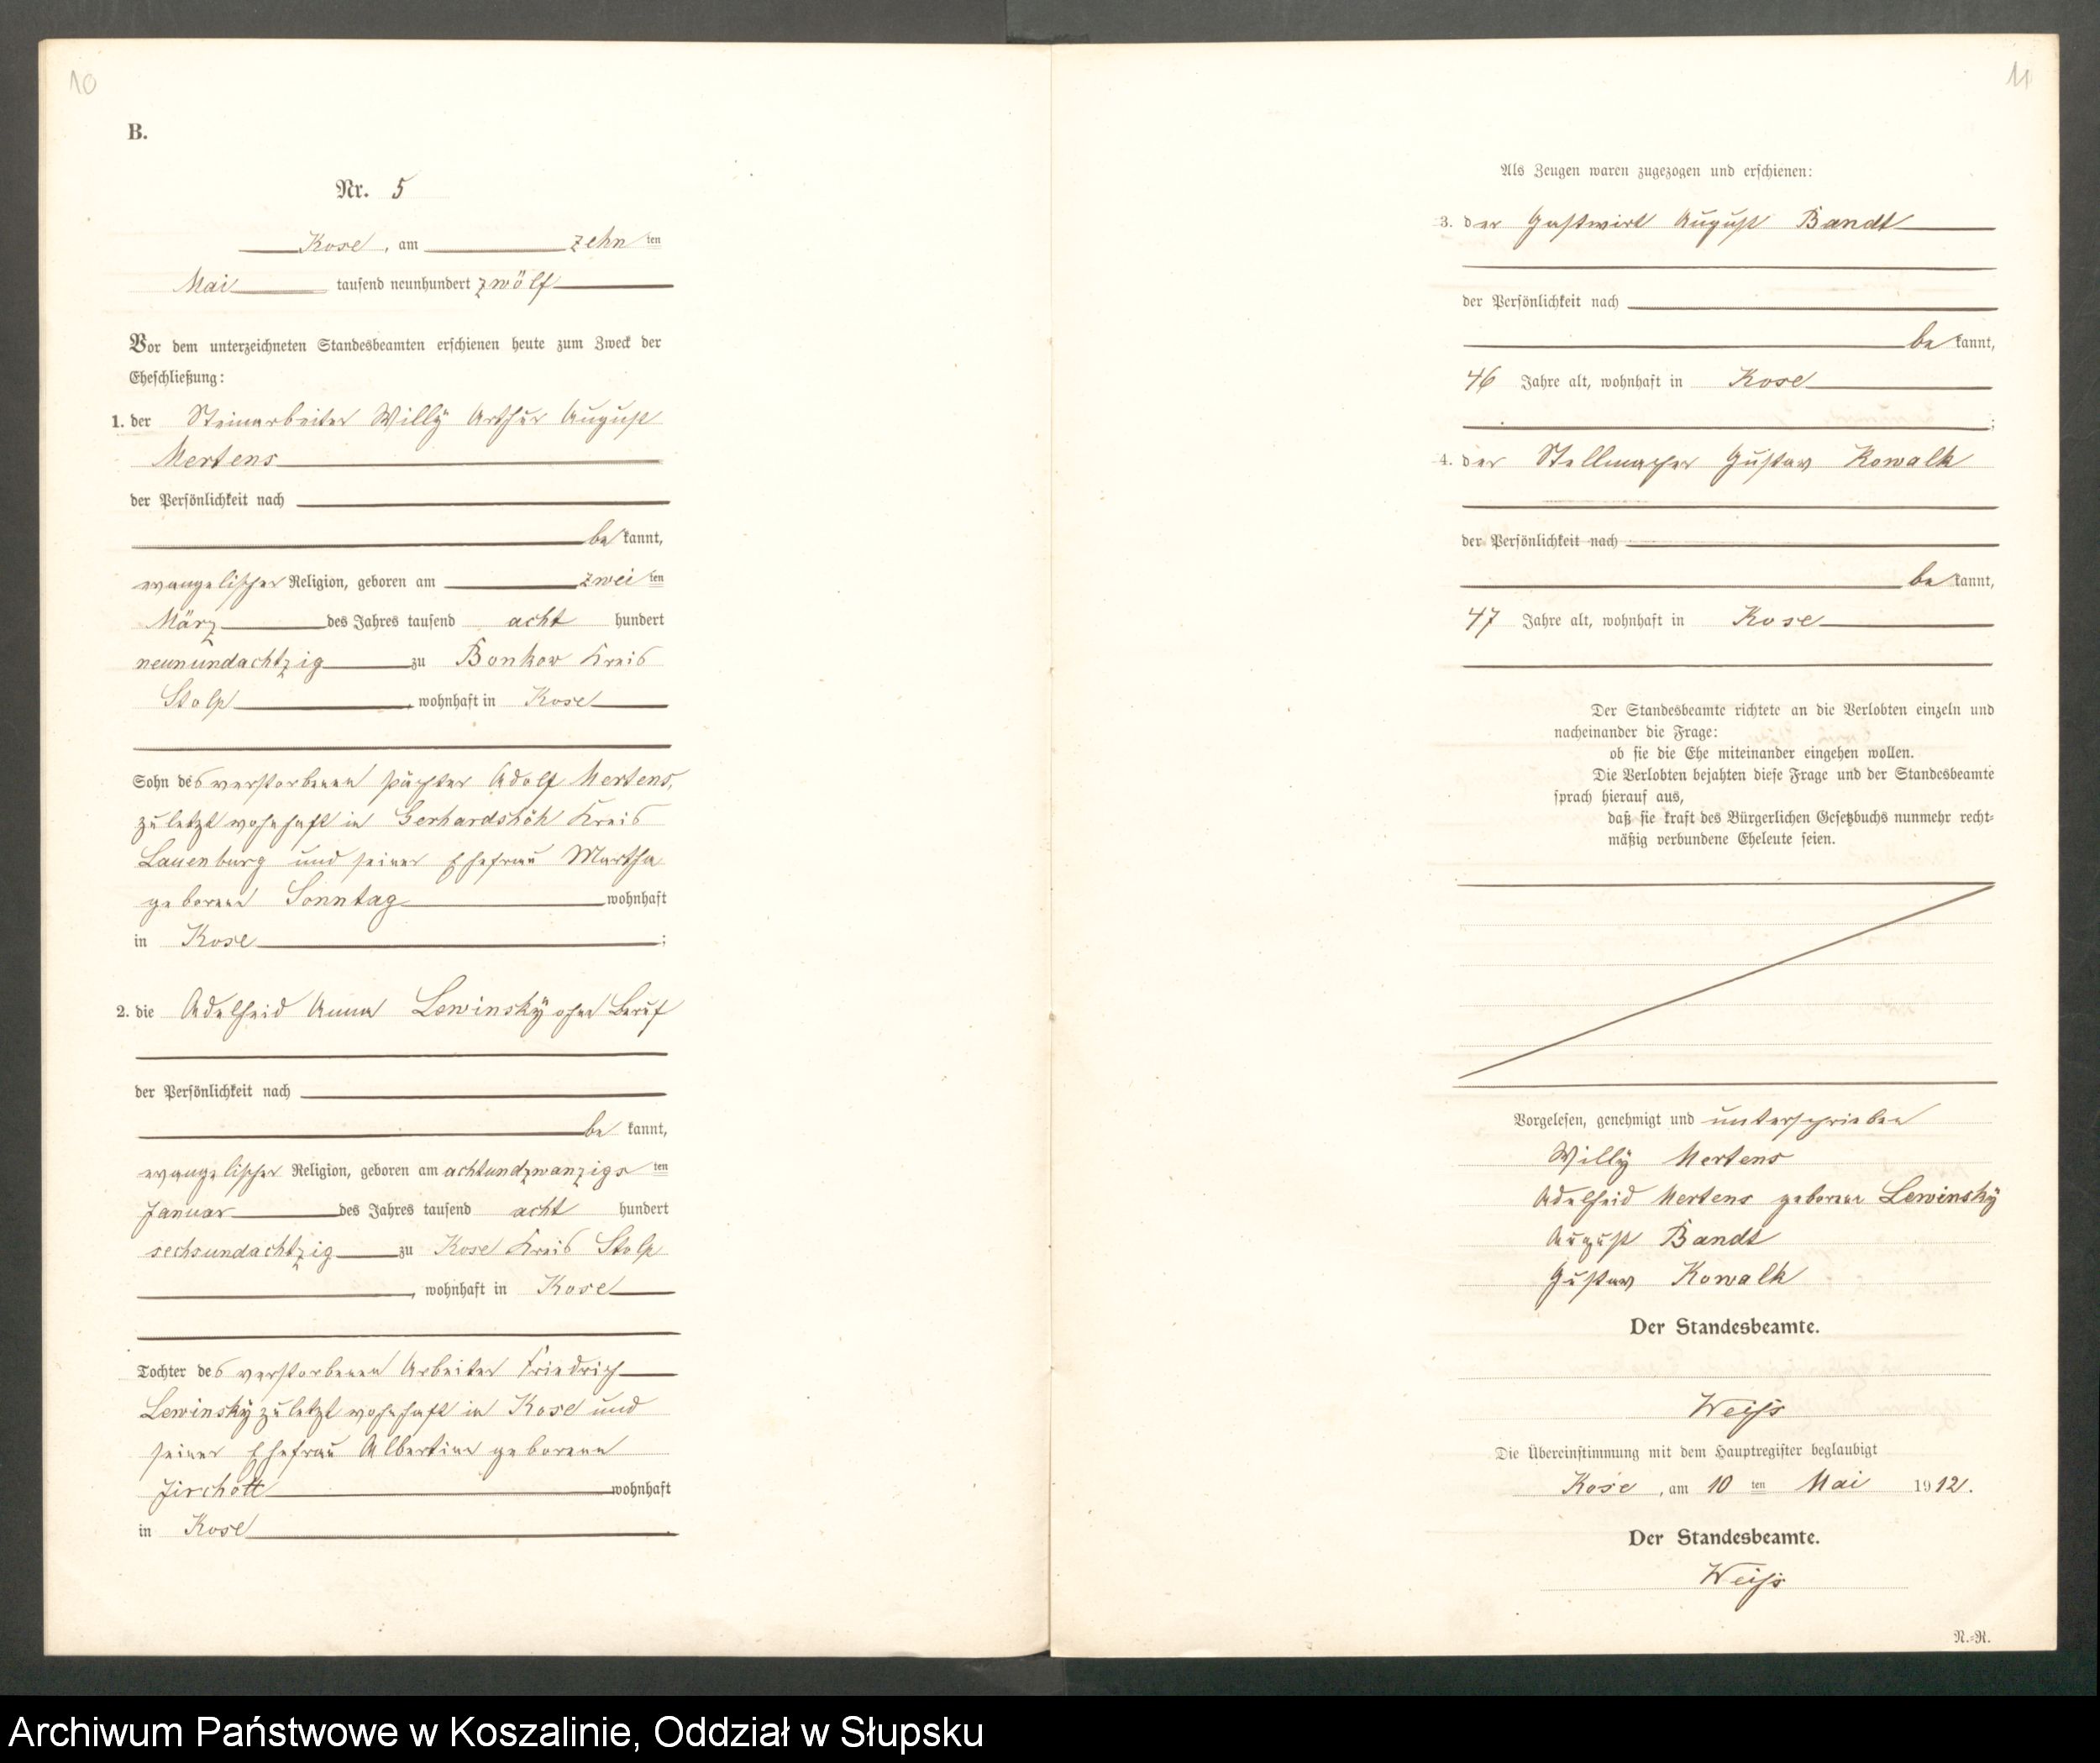 10
B.
Nr. 5
Kose, am zehn ten
Mai tausend neunhundert zwölf
Vor dem unterzeichneten Standesbeamten erschienen heute zum Zweck der
Eheschließung:
1. der Steinarbeiter Willy Arthur August
Mertens
der Persönlichkeit nach
be kannt,
evangelischer Religion, geboren am zwei ten
März des Jahres tausend acht hundert
neunundachtzig zu Bonkow Kreis
Stolp, wohnhaft in Kose
Sohn des verstorbenen Pächter Adolf Mertens,
zuletzt wohnhaft in Gerhardshöh Kreis
Lauenburg und seiner Ehefrau Martha
geborene Sonntag wohnhaft
in Kose;
2. die Adelheid Anna Lewinsky ohne Beruf
der Persönlichkeit nach
be kannt,
evangelischer Religion, geboren am achtundzwanzigs ten
Januar des Jahres tausend acht hundert
sechsundachtzig zu Kose Kreis Stolp
, wohnhaft in Kose
Tochter des verstorbenen Arbeiter Friedrich
Lewinsky zuletzt wohnhaft in Kose und
seiner Ehefrau Albertine geborene
Jirchott wohnhaft
in Kose.
11
Als Zeugen waren zugezogen und erschienen:
3. der Gastwirt August Bandt
der Persönlichkeit nach
be kannt,
46 Jahre alt, wohnhaft in Kose
;
4. der Stellmacher Gustav Kowalk
der Persönlichkeit nach
be kannt,
47 Jahre alt, wohnhaft in Kose
Der Standesbeamte richtete an die Verlobten einzeln und
nacheinander die Frage:
ob sie die Ehe miteinander eingehen wollen.
Die Verlobten bejahten diese Frage und der Standesbeamte
sprach hierauf aus,
daß sie kraft des Bürgerlichen Gesetzbuchs nunmehr recht-
mäßig verbundene Eheleute seien.
Vorgelesen, genehmigt und unterschrieben
Willy Mertens
Adelheid Mertens geborene Lewinsky
August Bandt
Gustav Kowalk
Der Standesbeamte.
Weiß
Die Übereinstimmung mit dem Hauptregister beglaubigt
Kose, am 10 ten Mai 1912.
Der Standesbeamte.
Weiß
N.-R.
Archiwum Państwowe w Koszalinie, Oddział w Słupsku